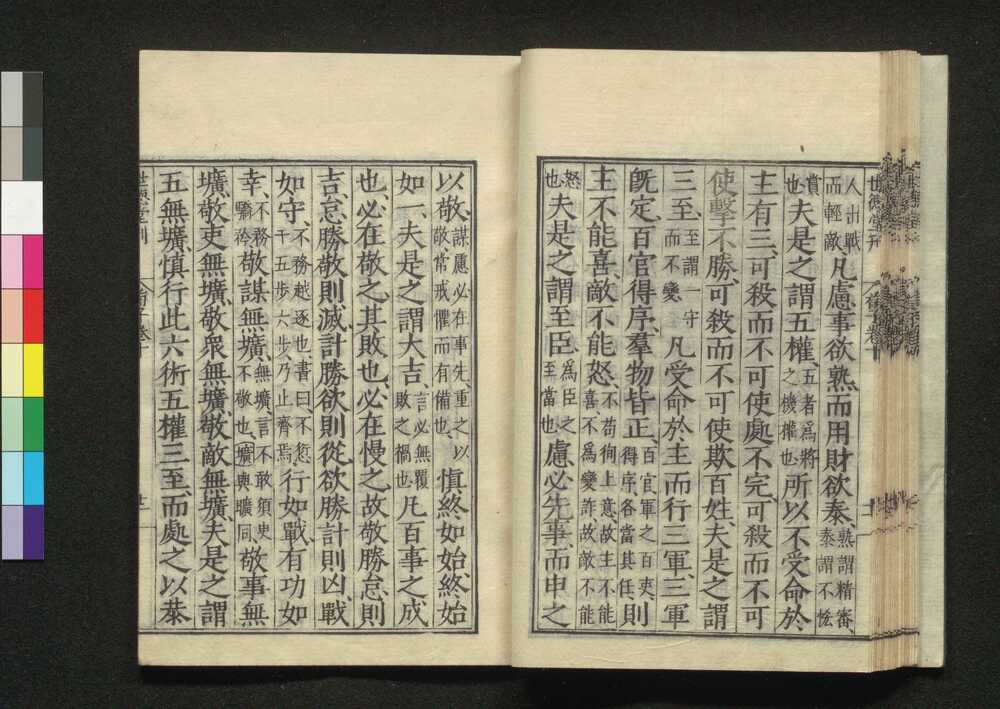 人出戰而輕敵凡慮事欲熟而用財欲泰熟謂精審泰謂不悋
賞也夫是之謂五權五者爲將之機權也所以不受命於
主有三可殺而不可使處不完可殺而不可
使擊不勝可殺而不可使欺百姓夫是之謂
三至至謂一守而不變凡受命於主而行三軍三軍
旣定百官得序羣物皆正百官軍之百吏得序各當其任則
主不能喜敵不能怒不苟徇上意故主不能喜不爲變詐故敵不能
怒也夫是之謂至臣爲臣之至當也慮必先事而申之
以敬謀慮必在事先重之以敬常戒懼而有備也愼終如始終始
如一夫是之謂大吉言必無覆敗之禍也凡百事之成
也必在敬之其敗也必在慢之故敬勝怠則
吉怠勝敬則滅計勝欲則從欲勝計則凶戰
如守不務越逐也書曰不愆于五步六步乃止齊焉行如戰有功如
幸不務驕矜敬謀無壙無壙言不敢須臾不敬也壙與曠同敬事無
壙敬吏無壙敬衆無壙敬敵無壙夫是之謂
五無壙愼行此六術五權三至而處之以恭
世德堂刊